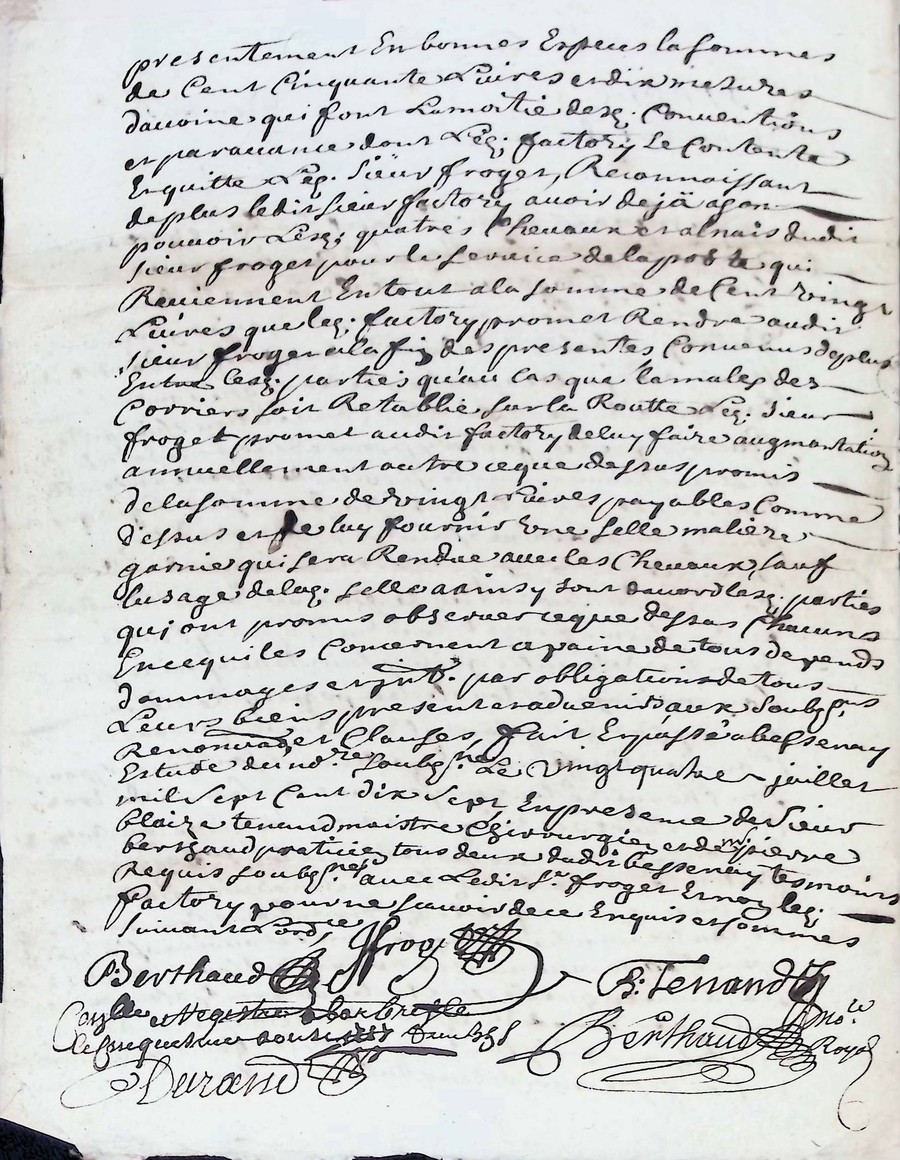 presentement En bonnes Especes la sommes
de Cent Cinquante Livres et dix mesures
davoine qui font Lamoitié desq. Conventions
et par avance dont Leq. factory se Contente
Et quitte Leq. Sieur froget, Reconnaissant
de plus ledit sieur factory avoir dejä a son
pouvoir Lesq. quatres Chevaux et alnais dudit
sieur froget pour le service de la poste qui
Reviennent En tout a la somme de Cent vingt
Livres que leq. factory promet Rendre audit
sieur froget a la fin des presentes Convenus de plus
Entre lesq. parties qu'au cas que la malle des
Corriers soit Retablie sur la Routte Leq. Sieur
froget promet audit factory de luy faire augmantation
annuellement outre ce que dessus promis
de la somme de vingt Livres payables Comme
dessus et de luy fournir Une selle maliere
garnie qui sera Rendue avec les Chevaux, sauf
lusage de laq. selle ainsy sont davord lesq. parties
qui ont promis observer ce que dessus Chacuns
En ce qui les Concernent a paine de tous depends
dommages et intts. par obligations de tous
Leurs biens present et advenir aux soubzns
Renonват et Clauses, fait Et passé a bessenay
Estude du no.re soubzne Le Vingt quatre juillet
mil sept Cent dix sept, En presence de Sieur
blaize tenand maistre Chirourgien et de me pierre
berthaud praticien tous deux dudit bessenay tesmoins
Requis soubznes avec Ledit sr froget Et non leq.
factory pour ne scavoir de ce Enquis et sommes
suivant Lordce
froget
P. Berthaud B: Tenand
Conlle et Registre a larbresle
le aoust 1717
Durand
Berthaud no.re Royal